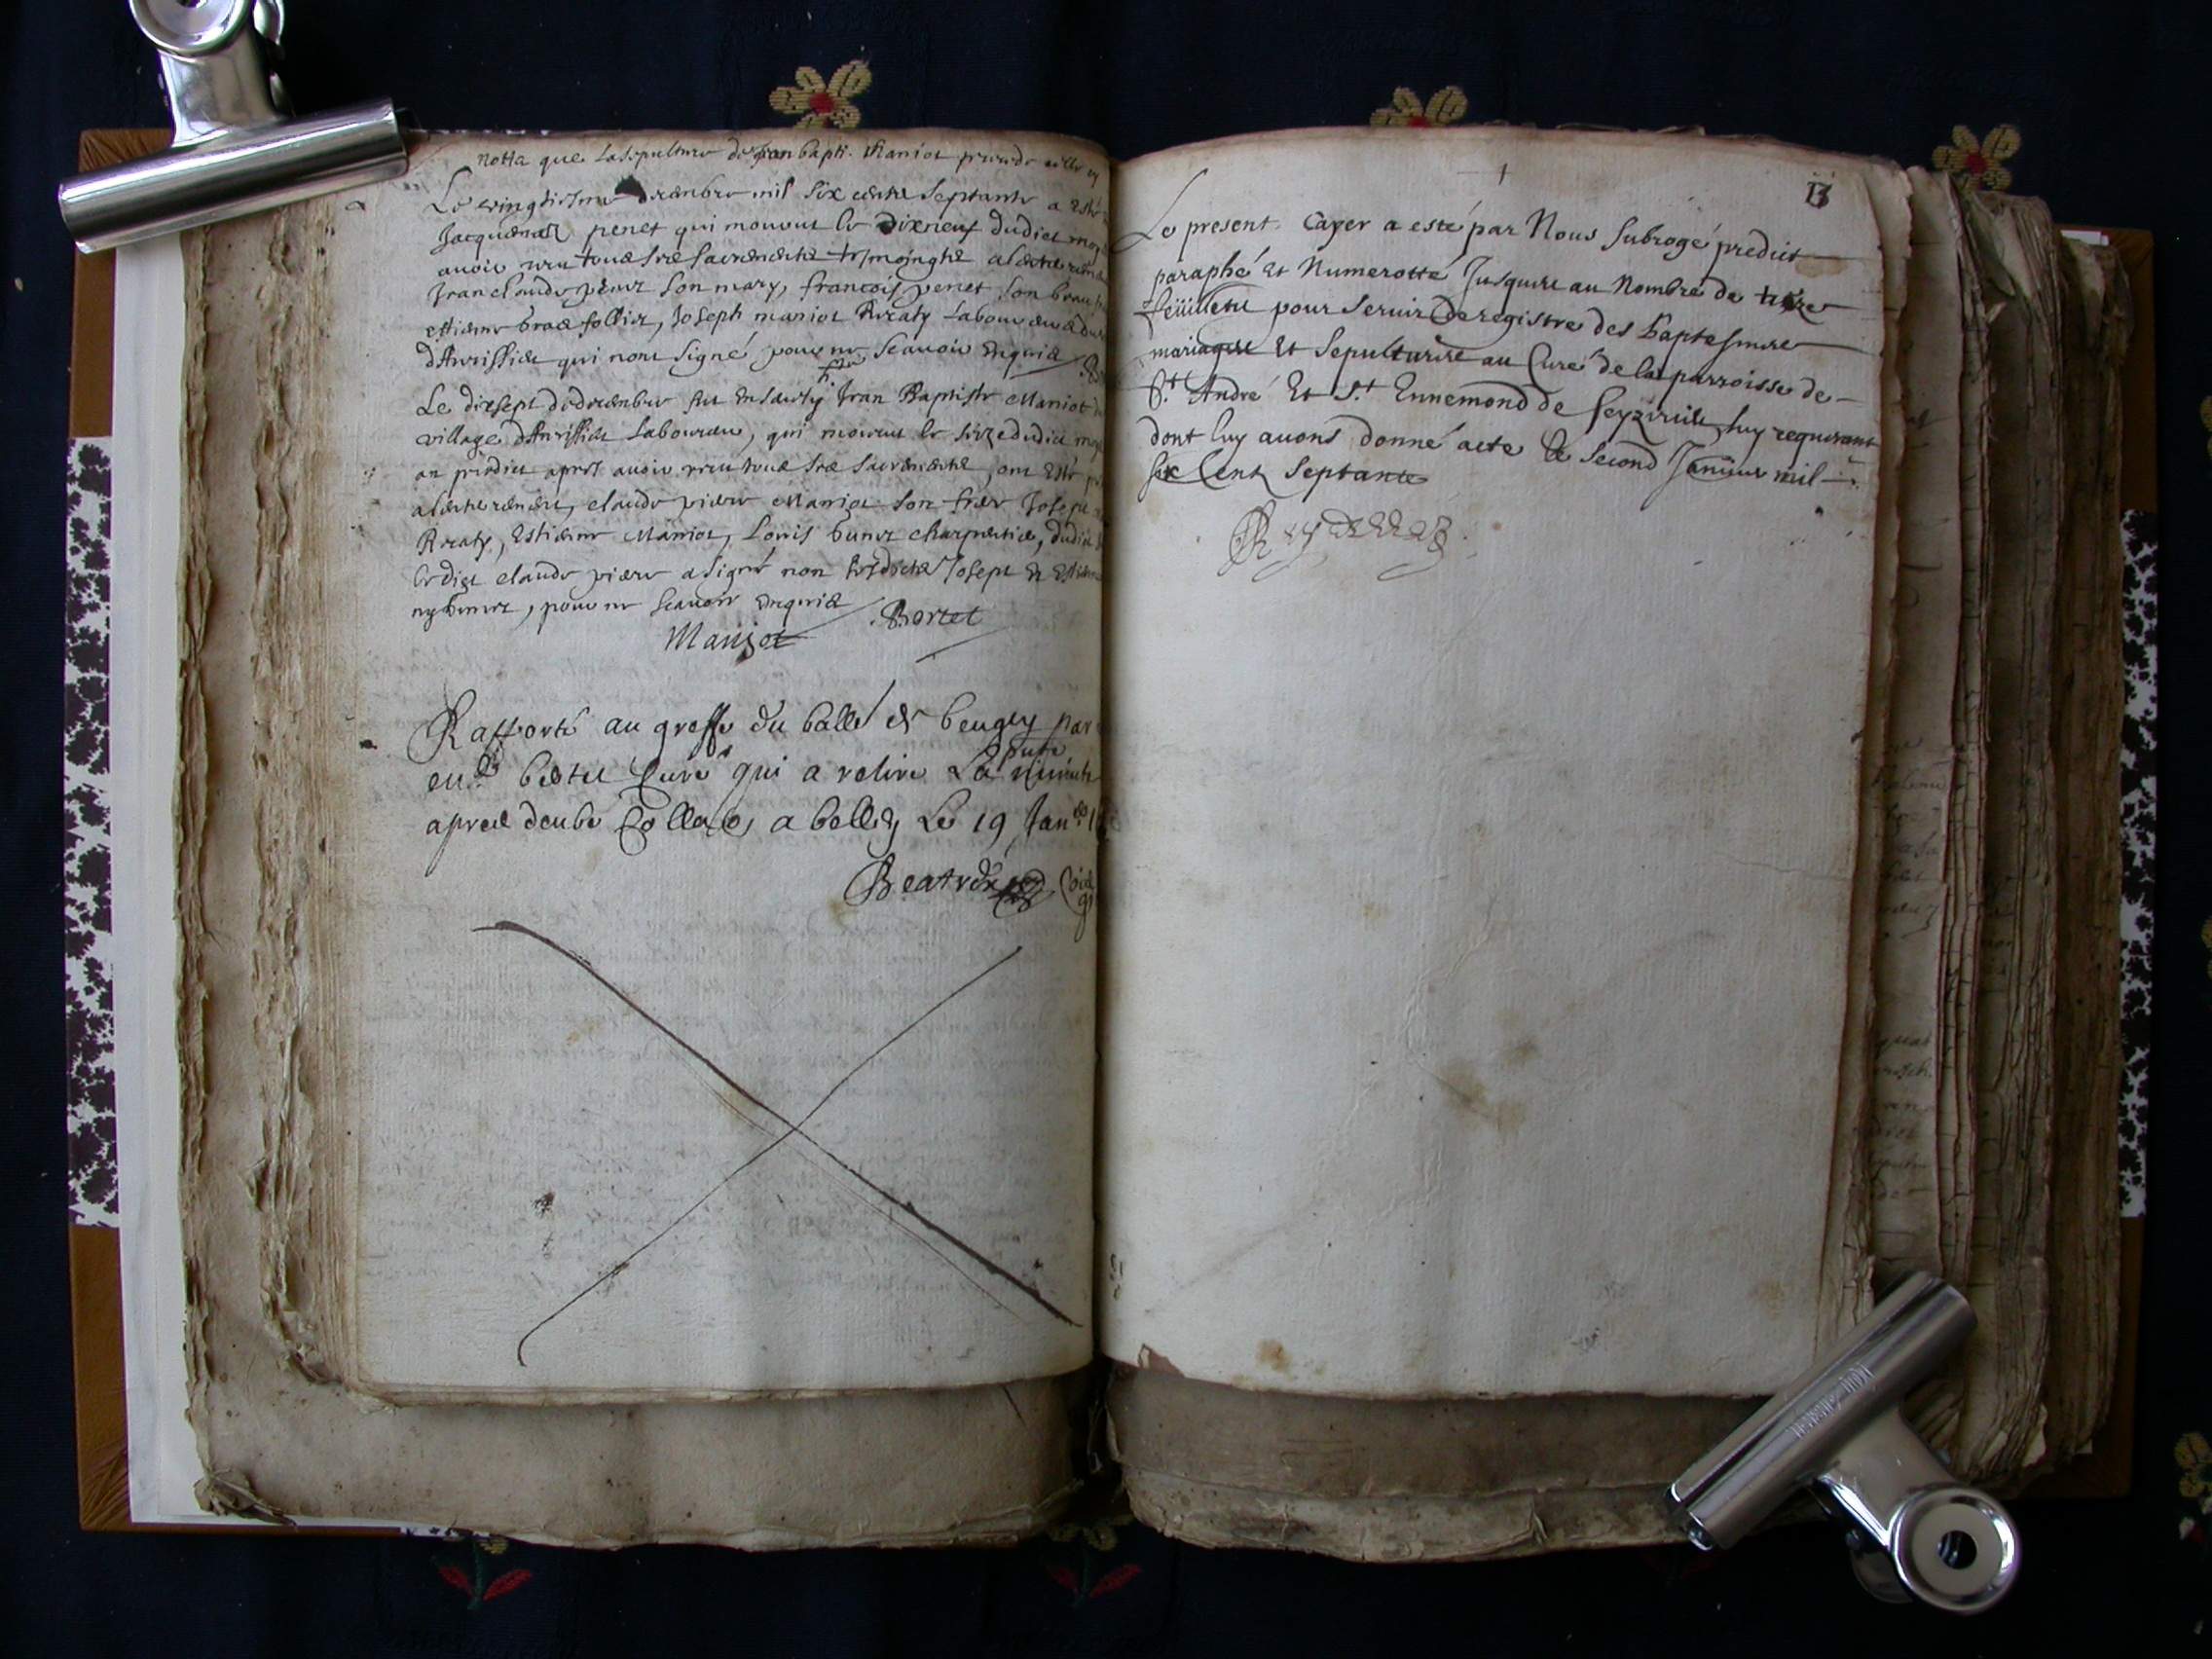 notta que la sepulture de Jean bapti. Maniot
Le vingtiesme decembre mil six cents septante a esté
penet qui mourut le dixneuf dudict moy
avoir receu tous ses sacrements
Jean claude son mary, francois penet son beau
Joseph maniot Reaty laboureur
qui nont signé pour ne scavoir enquis
Le dixsept decembre fut ensevely Jean Baptiste Maniot
village laboureur, qui mourut le seize dudict moy
an predict apres avoir receu tous ses sacrements, ont esté
claude piere Maniot son frere Joseph
Reaty, Estienne Maniot, Louis bunet charpentier, dudict
ledict claude piere a signé non lesdicts Joseph et Estienne
ny bunet, pour ne scavoir enquis
Maniot Bortet
Rapporté au greffe du balle de beugey par
curé qui a retiré La minute
apres deube Colla à belley Le 19 Jan
13
Le present Cayer a esté par Nous Subrogé predict
paraphé et Numerotté Jusques au Nombre de treize
feüillets pour Servir de registre des baptesmes
mariages et Sepultures au Curé de la parroisse de
St. André Et St. Ennemond de Seyzirieu, luy requerant
dont luy avons donné acte le second Janvier mil
six Cent Septante